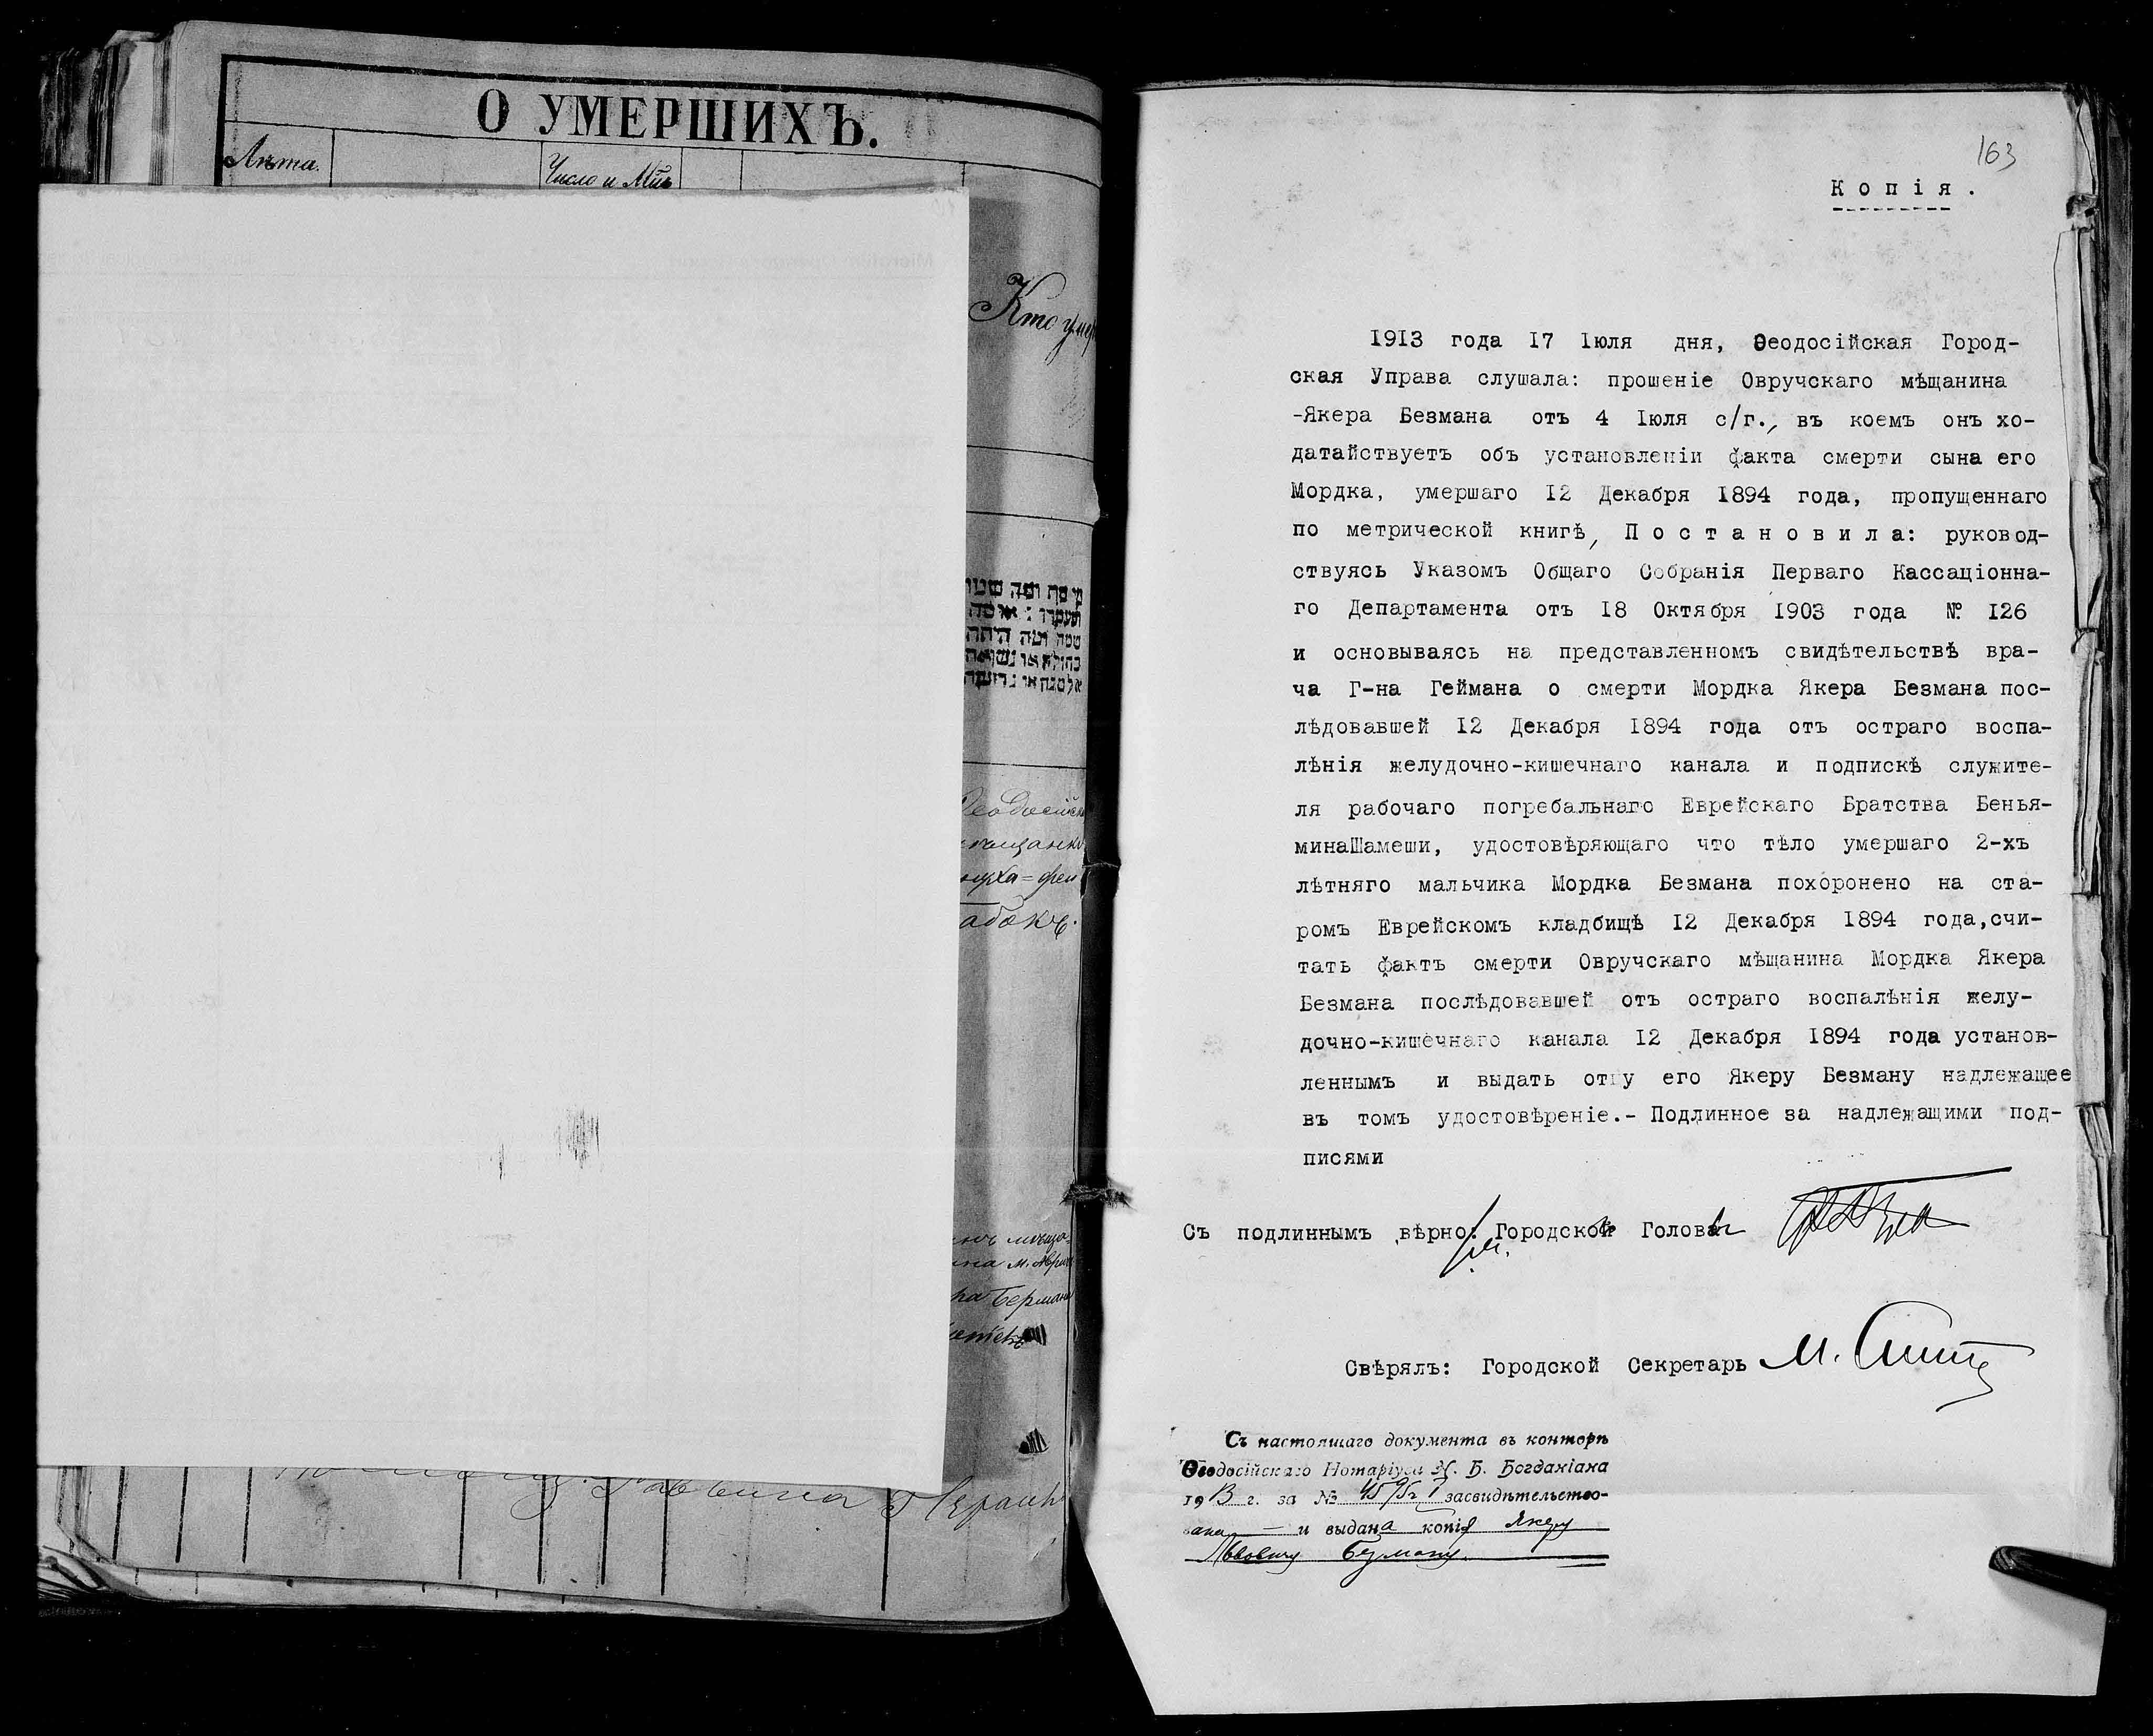 О УМЕРШИХЪ.
Лѣта.
Число и
Кто
שמה ומה היתה
мѣщанк
на Берман
Раввина
163
Копія.
1913 года 17 Іюля дня, Ѳеодосійская Город-
ская Управа слушала: прошеніе Овручскаго мѣщанина
-Якера Безмана отъ 4 Іюля с/г., въ коемъ онъ хо-
датайствуетъ объ установленіи факта смерти сына его
Мордка, умершаго 12 Декабря 1894 года, пропущеннаго
по метрической книгѣ, Постановила: руковод-
ствуясь Указомъ Общаго Собранія Перваго Кассаціонна-
го Департамента отъ 18 Октября 1903 года № 126
и основываясь на представленномъ свидѣтельствѣ вра-
ча Г-на Геймана о смерти Мордка Якера Безмана пос-
лѣдовавшей 12 Декабря 1894 года отъ остраго воспа-
лѣнія желудочно-кишечнаго канала и подпискѣ служите-
ля рабочаго погребальнаго Еврейскаго Братства Бенья-
минаШамеши, удостовѣряющаго что тѣло умершаго 2-хъ
лѣтняго мальчика Мордка Безмана похоронено на ста-
ромъ Еврейскомъ кладбищѣ 12 Декабря 1894 года,счи-
тать фактъ смерти Овручскаго мѣщанина Мордка Якера
Безмана послѣдовавшей отъ остраго воспалѣнія желу-
дочно-кишечнаго канала 12 Декабря 1894 года установ-
леннымъ и выдать отцу его Якеру Безману надлежащее
въ томъ удостовѣреніе.- Подлинное за надлежащими под-
писями
Съ подлиннымъ вѣрно: Городской Голова
Свѣрялъ: Городской Секретарь М.
Съ настоящаго документа въ конторѣ
Ѳеодосійскаго Нотаріуса Н. Б. Богданіана
1913 г. за № засвидѣтельство-
вана — и выдана копія Якеру
Львовичу Безману.